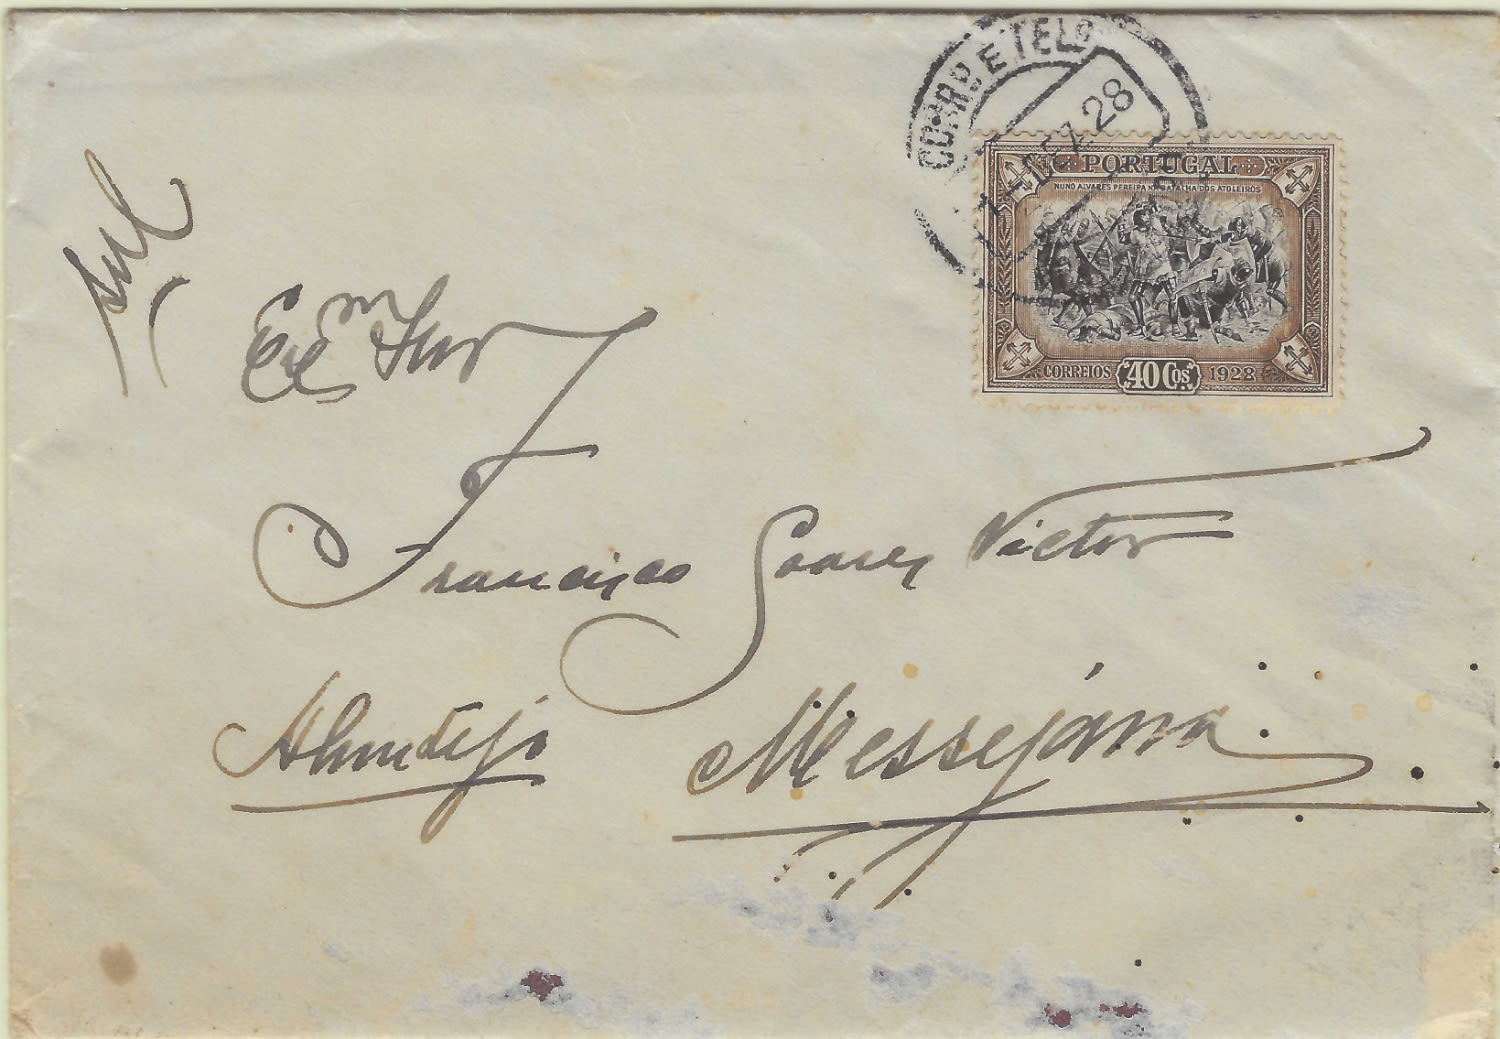 CORR E TELG
1-DEZ.28
PORTUGAL
NUNO ALVARES PEREIRA NA BATALHA DOS ATOLEIROS
CORREIOS 40 Cos. 1928
Sul
Exmº Snr
Francisco Soares Victor
Alemtejo Messejána